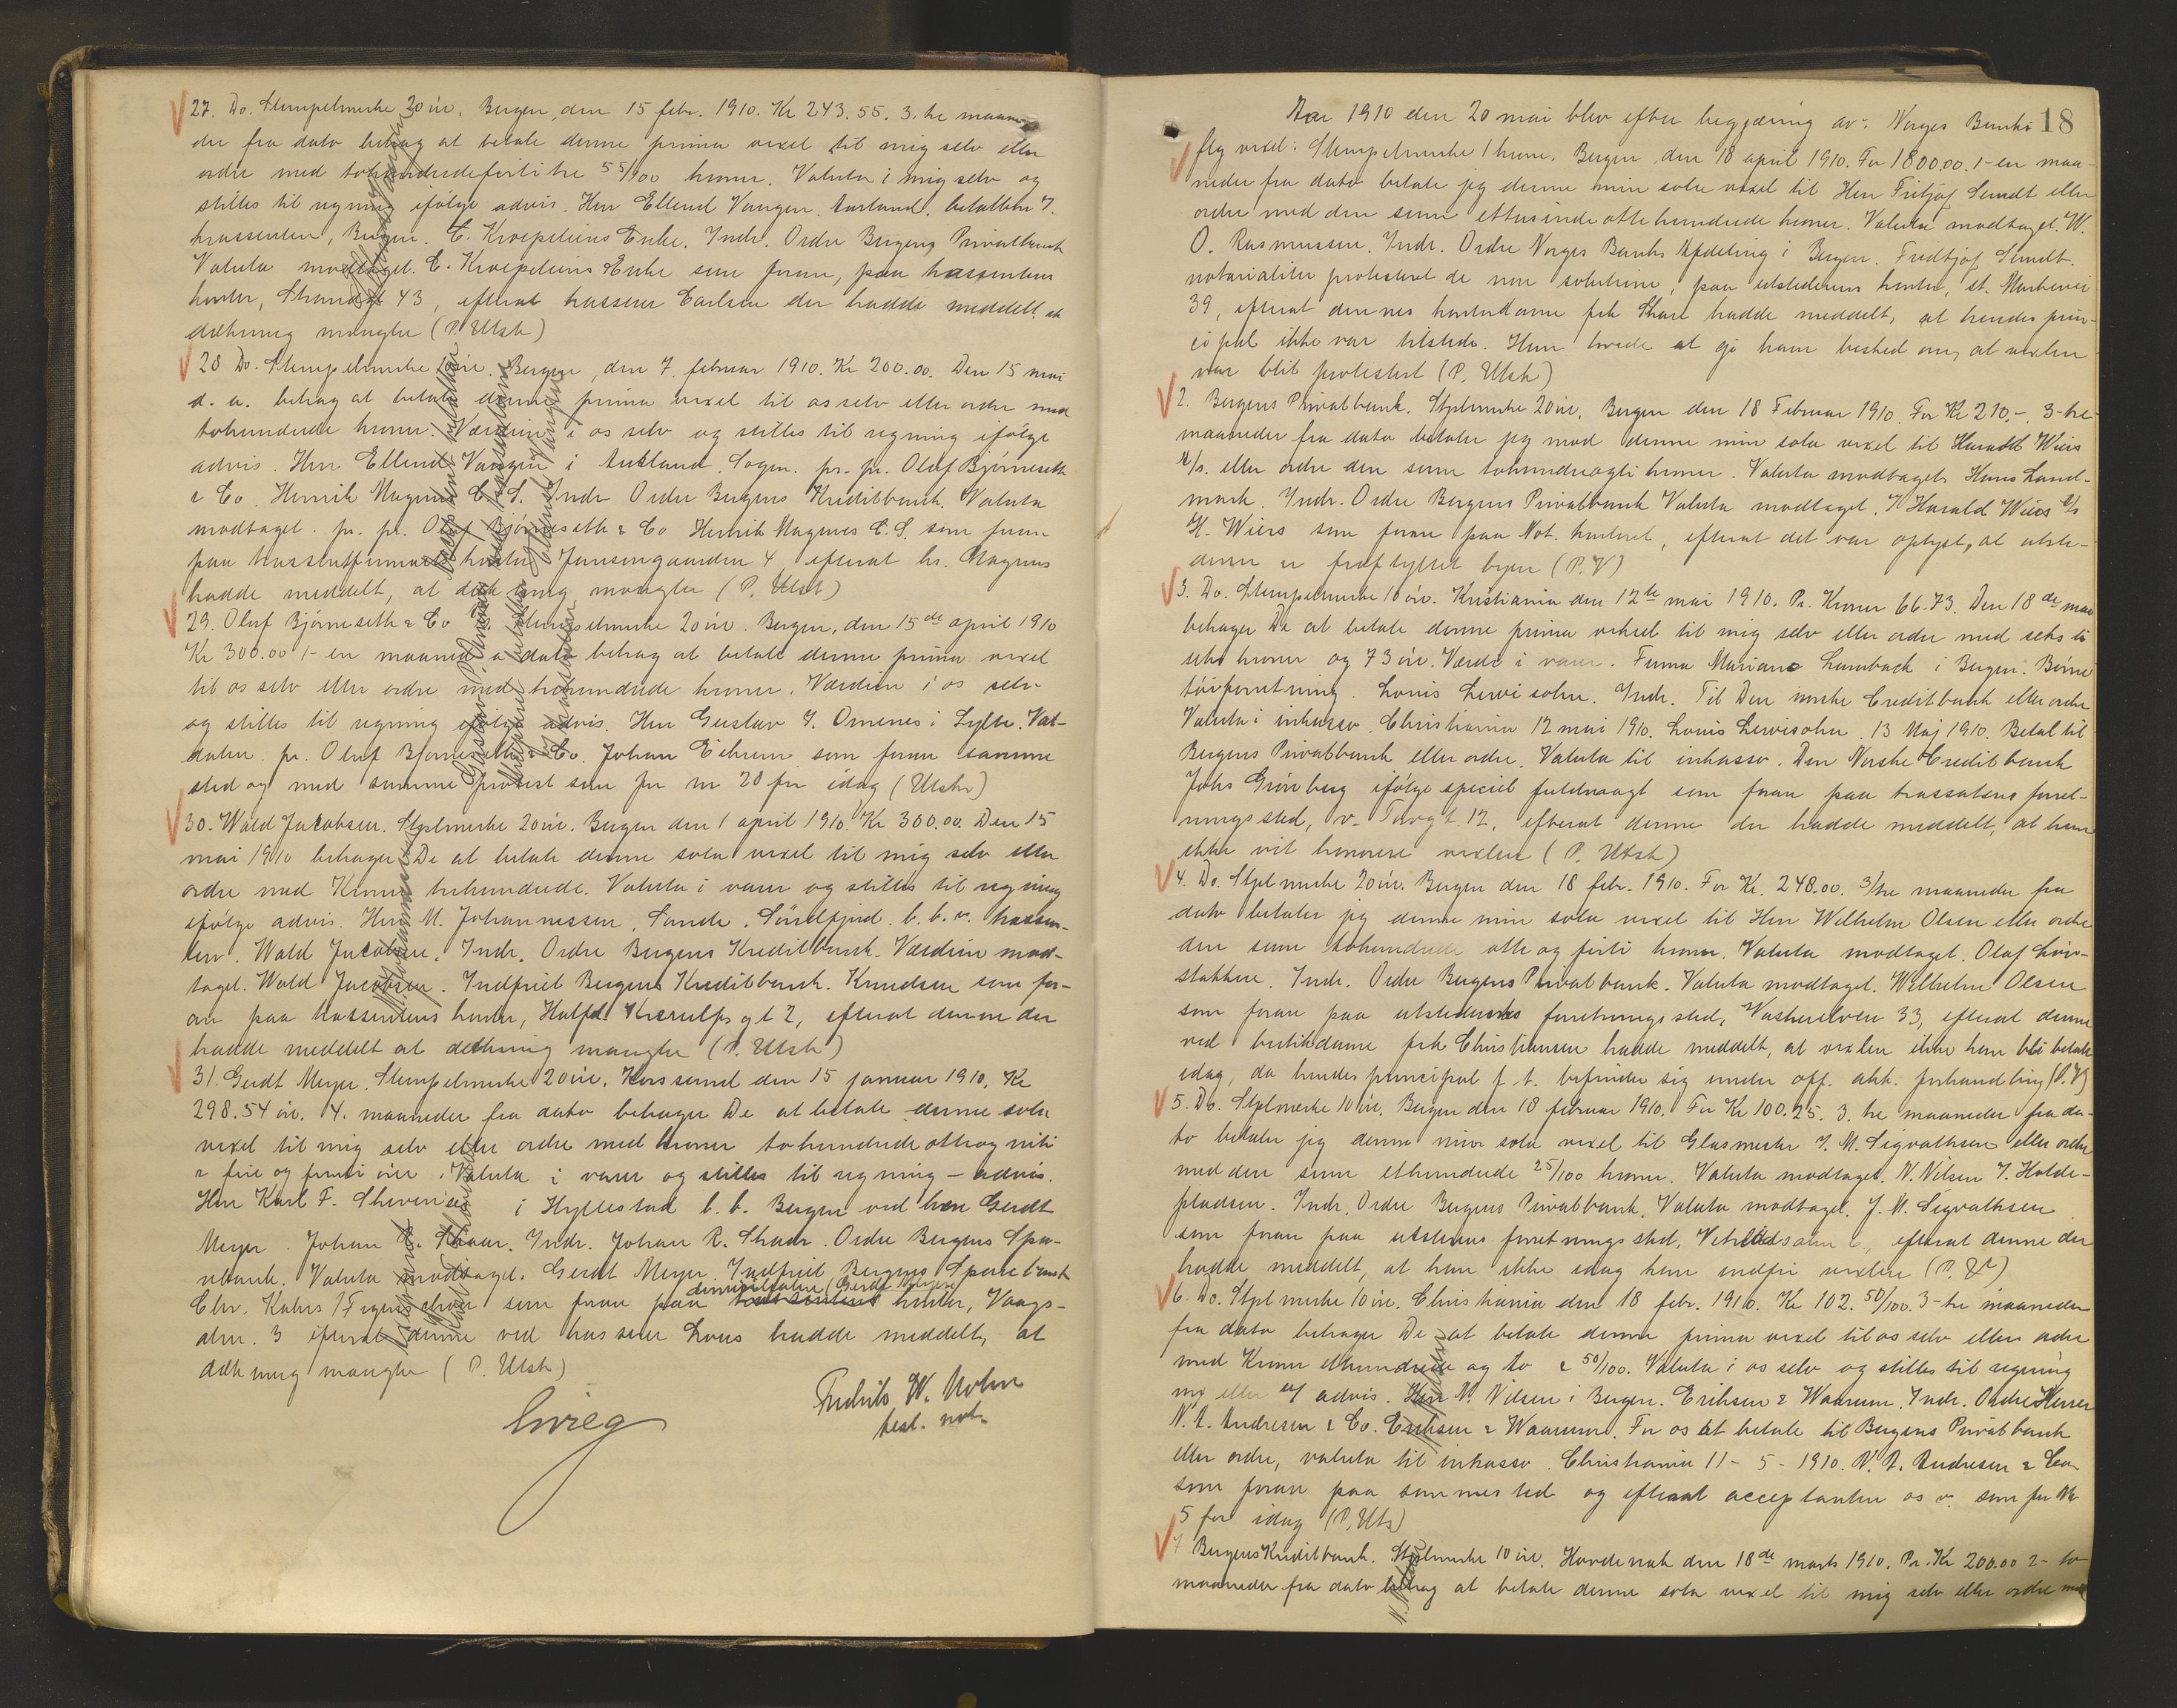 27. Do. Stempelmerke 20 øre. Bergen, den 15 febr. 1910. Kr 243.55. 3. tre maane-
der fra dato behag at betale denne prima vexel til mig selv eller
ordre med tohundredeførtitre 55/100 kroner. Valuta i mig selv og
stilles til regning ifølge advis. Herr Ellend Vangen, Aurland, betalbar
trassenten, Bergen. C. Kroepeliens Enke. Indr. Ordre Bergens Privatbank
Valuta modtaget. C. Kroepeliens Enke som foran, paa trassentens
kontor, Strandgt 43, efterat kasserer Carlsen der hadde meddelt, at
dækning mangler (P. Utst)
28 Do. Stempelmerke 10 øre. Bergen, den 7. februar 1910. Kr 200.00. Den 15 mai
d. a. behag at betale denne prima vexel til os selv eller ordre med
tohundrede kroner. Værdien i os selv og stilles til regning ifølge
advis. Herr Ellend Vangen i Aurland, Sogn. pr. pr. Olaf Bjørneseth
& Co. Henrik Magnus C. S. Indr Ordre Bergens Kreditbank. Valuta
modtaget. pr. pr. Olaf Bjørneseth & Co Henrik Magnus C. S. som foran
paa trassentfirmaets kontor Jansengaarden 4 efterat hr. Magnus
hadde meddelt, at dækning mangler (P. Utst)
29. Oluf Bjørneseth & Co Do. Stempelmerke 20 øre. Bergen, den 15de april 1910
Kr 300.00 1- en maaned a dato behag at betale denne prima vexel
til os selv eller ordre med trehundrede kroner. Værdien i os selv
og stilles til regning ifølge advis. Herr Gustav P. Omenes i Sylte. Val-
dalen. pr. Oluf Bjørneseth & Co. Johan Eikrem som foran samme
sted og med samme protest som for nr 28 for idag (Utst)
30. Wald Jacobsen. Stplmerke 20 øre. Bergen den 1 april 1910. Kr 300.00. Den 15
mai 1910 behager De at betale denne sola vexel til mig selv eller
ordre med Kroner trehundrede. Valuta i varer og stilles til regning
ifølge advis. Herr M. Johannessen, Sande, Søndfjord. b. b. v. trassen-
ten. Wald Jacobsen. Indr. Ordre Bergens Kreditbank. Værdien mod-
taget. Wald Jacobsen. Indfriet Bergens Kreditbank. Knudsen som for-
an paa trassentens kontor, Halfd. Kierulfs gt 2, efterat denne der
hadde meddelt at dækning mangler (P. Utst)
31. Gerdt Meyer. Stempelmerke 20 øre. Korssund den 15 januar 1910. Kr
298.54 øre. 4. maaneder fra dato behager De at betale denne sola
vexel til mig selv eller ordre med kroner tohundrede otteogniti
& fire og femti øre. Valuta i varer og stilles til regning - advis.
Herr Karl F. i Hyllestad b. b. Bergen ved herr Gerdt
Meyer. Johan R. Skaar. Indr. Johan R. Skaar. Ordre Bergens Spa-
rebank. Valuta modtaget. Gerdt Meyer Indfriet Bergens Sparebank
domiciliatarens (Gerdt Meyers)
Chr. Kahrs som foran paa trassentens kontor, Vaags-
alm. 3 efterat denne ved kasserer hadde meddelt, at
dækning mangler (P. Utst)
Grieg
Fredrik W. Holm
best. not.
18
Aar 1910 den 20 mai blev efter begjæring av: Norges Banks
flg vexel: Stempelmerke 1 krone. Bergen den 18 april 1910. For 1800.00. 1- en maa-
neder fra dato betale jeg denne min sola vexel til Herr Fritjof Sundt eller
ordre med den sum ettusinde ottehundrede kroner. Valuta modtaget. W.
O. Rasmussen. Indr. Ordre Norges Banks Afdeling i Bergen. Fridtjof Sundt.
notarialiter protestert de non solutione, paa utstederens kontor, st. Markevei
39, efterat dennes kontordame frk hadde meddelt, at hendes prin-
cipal ikke var tilstede. Hun lovede at gi ham besked om, at vexlen
var blit protestert (P. Utst)
2. Bergens Privatbank. Stplmerke 20 øre. Bergen den 18 Februar 1910. For Kr 210.-. 3-tre
maaneder fra dato betaler jeg mod denne min sola vexel til Harald Wiers
A/s. eller ordre den sum tohundreogti kroner. Valuta modtaget. Hans Land-
mark. Indr. Ordre Bergens Privatbank Valuta modtaget. Harald Wiers A/s
H. Wiers som foran paa Not. kontoret, efterat det var oplyst, at utste-
deren er fraflyttet byen (P. V)
3. Do. Stempelmerke 10 øre. Kristiania den 12te mai 1910. Pr. Kroner 66.73. Den 18de mai
behager De at betale denne prima veksel til mig selv eller ordre med seksti
seks kroner og 73 øre. Værdi i varer. Firma Mariane Lambach i Bergen. Børne
tøiforretning. Louis Lewisohn. Indr. Til Den norske Creditbank eller ordre
Valuta i inkasso. Christiania 12 mai 1910. Louis Lewisohn. 13 Maj 1910. Betal til
Bergens Privatbank eller ordre. Valuta til inkasso. Den Norske Creditbank
Johs Grønberg ifølge speciel fuldmagt som foran paa trassatens forret-
ningssted, v- Torvgt. 12, efterat denne der hadde meddelt, at hun
ikke vil honorere vexlen (P. Utst)
4. Do. Stplmerke 20 øre. Bergen den 18 febr. 1910. For Kr. 248.00. 3/tre maaneder fra
dato betaler jeg denne min sola vexel til Herr Wilhelm Olsen eller ordre
den sum tohundrede otte og førti kroner. Valuta modtaget. Olaf Løv-
stakken. Indr. Ordre Bergens Privatbank. Valuta modtaget. Wilhelm Olsen
som foran paa utstederens forretningssted, Vaskerelven 33, efterat denne
ved butikdame frk Christiansen hadde meddelt, at vexlen ikke kan bli betalt
idag, da hendes principal f. t. befinder sig under off. akk. forhandling (P. V)
5. Do. Stplmerke 10 øre. Bergen den 18 februar 1910. For Kr 100.25. 3. tre maaneder fra da-
to betaler jeg denne min sola vexel til Glasmester J. M. Sigvathsen eller ordre
med den sum ethundrede 25/100 kroner. Valuta modtaget. N. Nilsen J. Holde-
pladsen. Indr. Ordre Bergens Privatbank. Valuta modtaget. J. M. Sigvathsen
som foran paa utstederens forretningssted, efterat denne der
hadde meddelt, at han ikke idag kan indfri vexlen (P. V)
6. Do. Stplmerke 10 øre. Christiania den 18 febr. 1910. Kr 102.50/100. 3-tre maaneder
fra dato behager De at betale denne prima vexel til os selv eller ordre
med Kroner ethundrede og to & 50/100. Valuta i os selv og stilles til regning
eller advis. Herr N. Nilsen i Bergen. Eriksen & Waarum. Indr. Ordre Herrer
N. A. Andresen & Co. Eriksen & Waarum. For os at betale til Bergens Privatbank
eller ordre, valuta til inkasso. Christiania 11-5-1910. N. A. Andresen & Co.
som foran paa samme sted og efterat acceptanten os v. som for Nr
5 for idag (P. Uts)
7 Bergens Kreditbank. Stplmerke 10 øre. Hovdevaak den 18de marts 1910. Pr. Kr 200.00 2- to
maaneder fra dato behag at betale denne sola vexel til mig selv eller ordre med